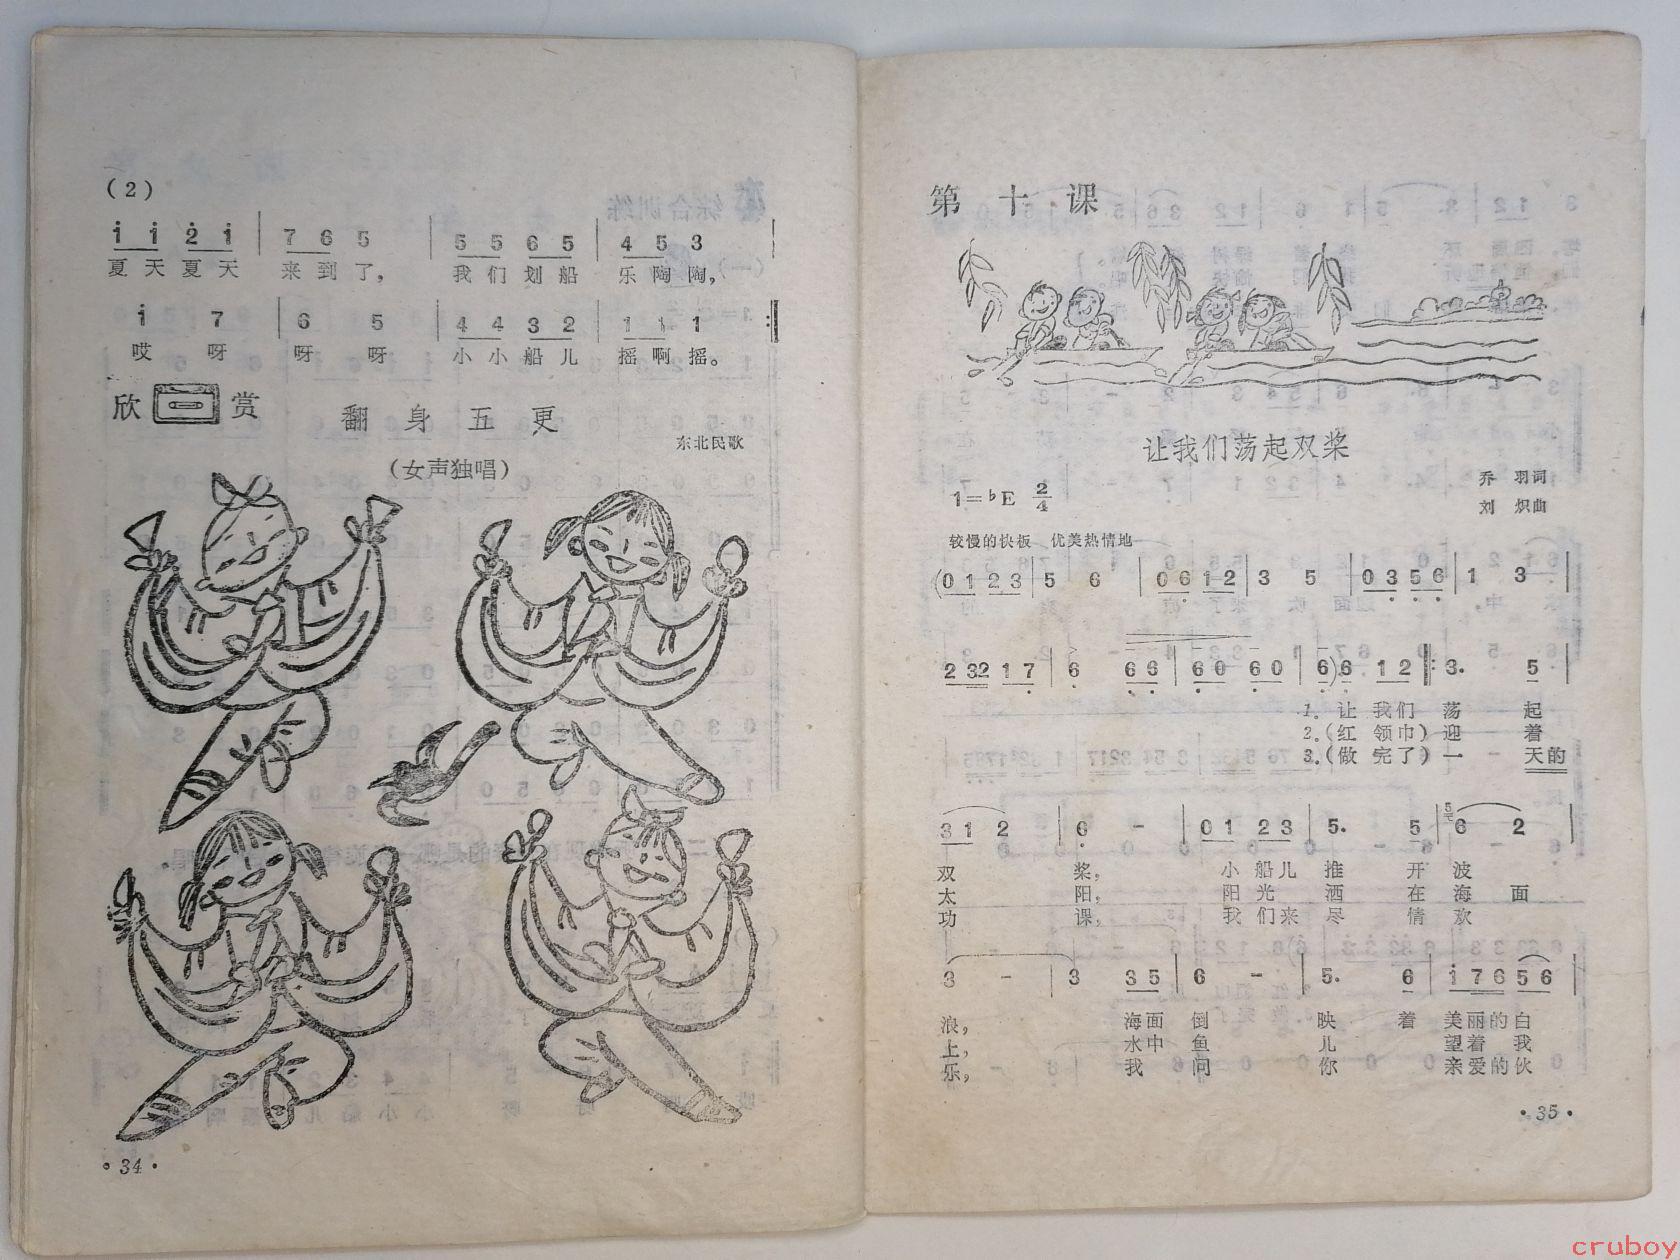 (2)
1 1 2 1 | 7 6 5 | 5 5 6 5 | 4 5 3 |
夏天夏天 来到了, 我们划船 乐陶陶,
1 7 | 6 5 | 4 4 3 2 | 1 1 1 :‖
哎 呀 呀 呀 小小船儿 摇啊摇。
欣赏 翻身五更
东北民歌
(女声独唱)
·34·
第十课
让我们荡起双桨
乔 羽词
1=♭E 2/4
刘 炽曲
较慢的快板 优美热情地
(0 1 2 3 | 5 6 | 0 6 1 2 | 3 5 | 0 3 5 6 | 1 3 |
2 32 1 7 | 6 6 6 | 6 0 6 0 | 6) 6 1 2 ‖: 3. 5 |
1。让 我们 荡 起
2。(红 领巾) 迎 着
3。(做 完了) 一 天的
3 1 2 | 6 - | 0 1 2 3 | 5. 5 | 6 2 |
双 桨, 小船儿 推 开 波
太 阳, 阳光 洒 在 海 面
功 课, 我们来 尽 情 欢
3 - | 3 3 5 | 6 - | 5. 6 | 1 7 6 5 6 |
浪, 海面 倒 映 着 美丽的白
上, 水中 鱼 儿 望着 我
乐, 我 问 你 亲爱的伙
·35·
cruboy